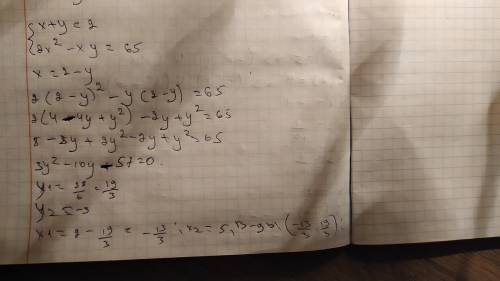 { x+y=2
{ 2x² - xy = 65
x = 2-y
2(2-y)² - y(2-y) = 65
2(4-4y+y²) - 2y+y² = 65
8 - 8y + 2y² - 2y + y² = 65
3y² - 10y - 57 = 0
y1 = 38/6 = 19/3
y2 = -3
x1 = 2 - 19/3 = -13/3 ; x2 = 5, (-13/3; 19/3)